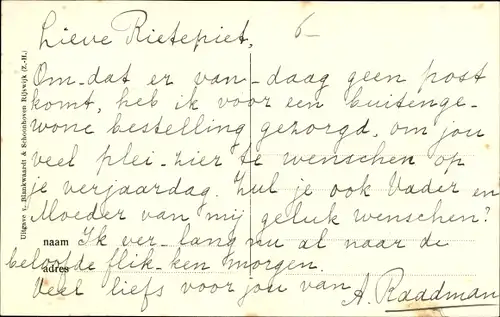 Lieve Rietepiet,
6-
Om-dat er van-daag geen post
komt, heb ik voor een buitenge-
wone bestelling gezorgd, om jou
veel plei-zier te wenschen op
je verjaardag. Zul je ook Vader en
Moeder van mij geluk wenschen?
naam
Ik ver-lang nu al naar de
beloofde flik-ken morgen.
adres
Veel liefs voor jou van
A. Raadman
Uitgave v. Blankwaardt & Schoonhoven Rijswijk (Z.-H.)